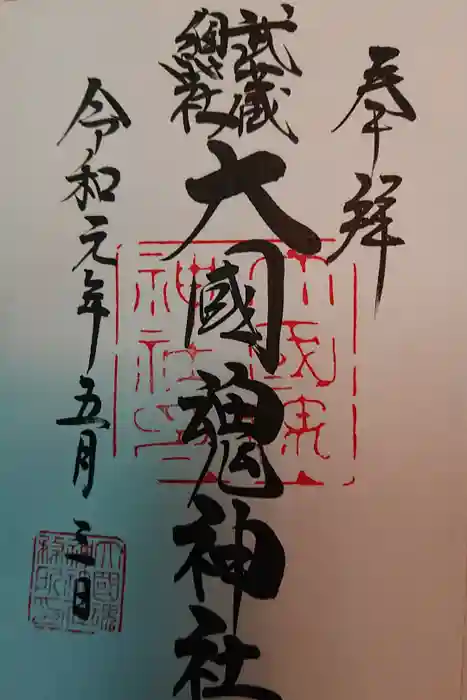 奉拝
武蔵
總社
大國魂神社
令和元年五月三日